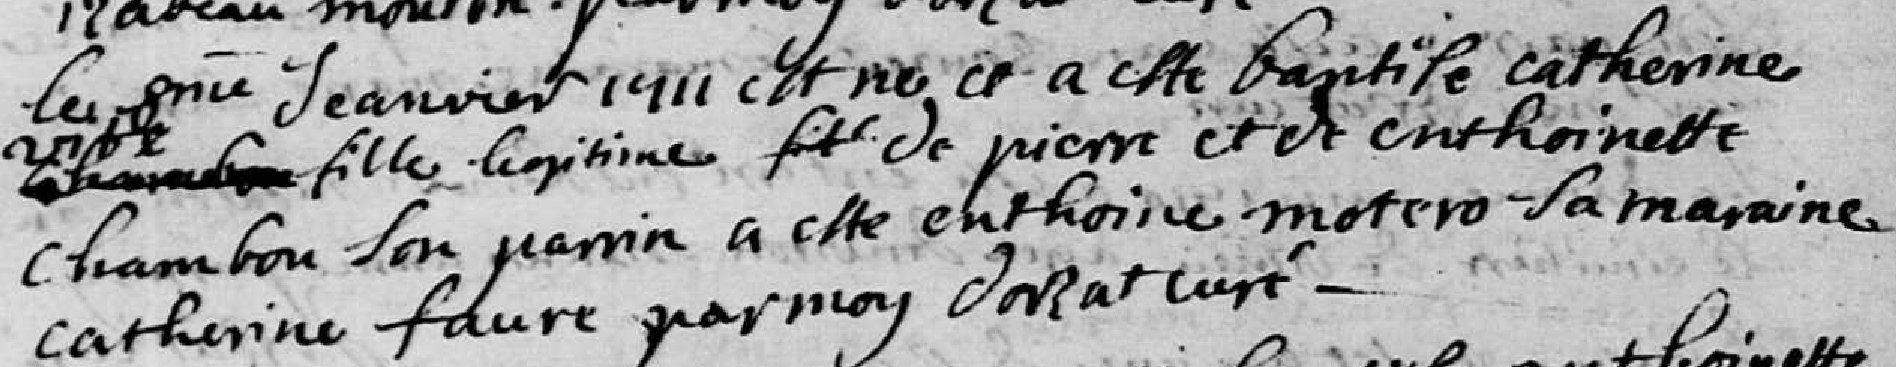 mouton par moy
le 8me Jeanvier 1711 est ne et a este baptise catherine
fille legitime de pierre et de enthoinette
chambon son parrin a este enthoine motero sa maraine
catherine faure par moy dorzat curé
enthoinette